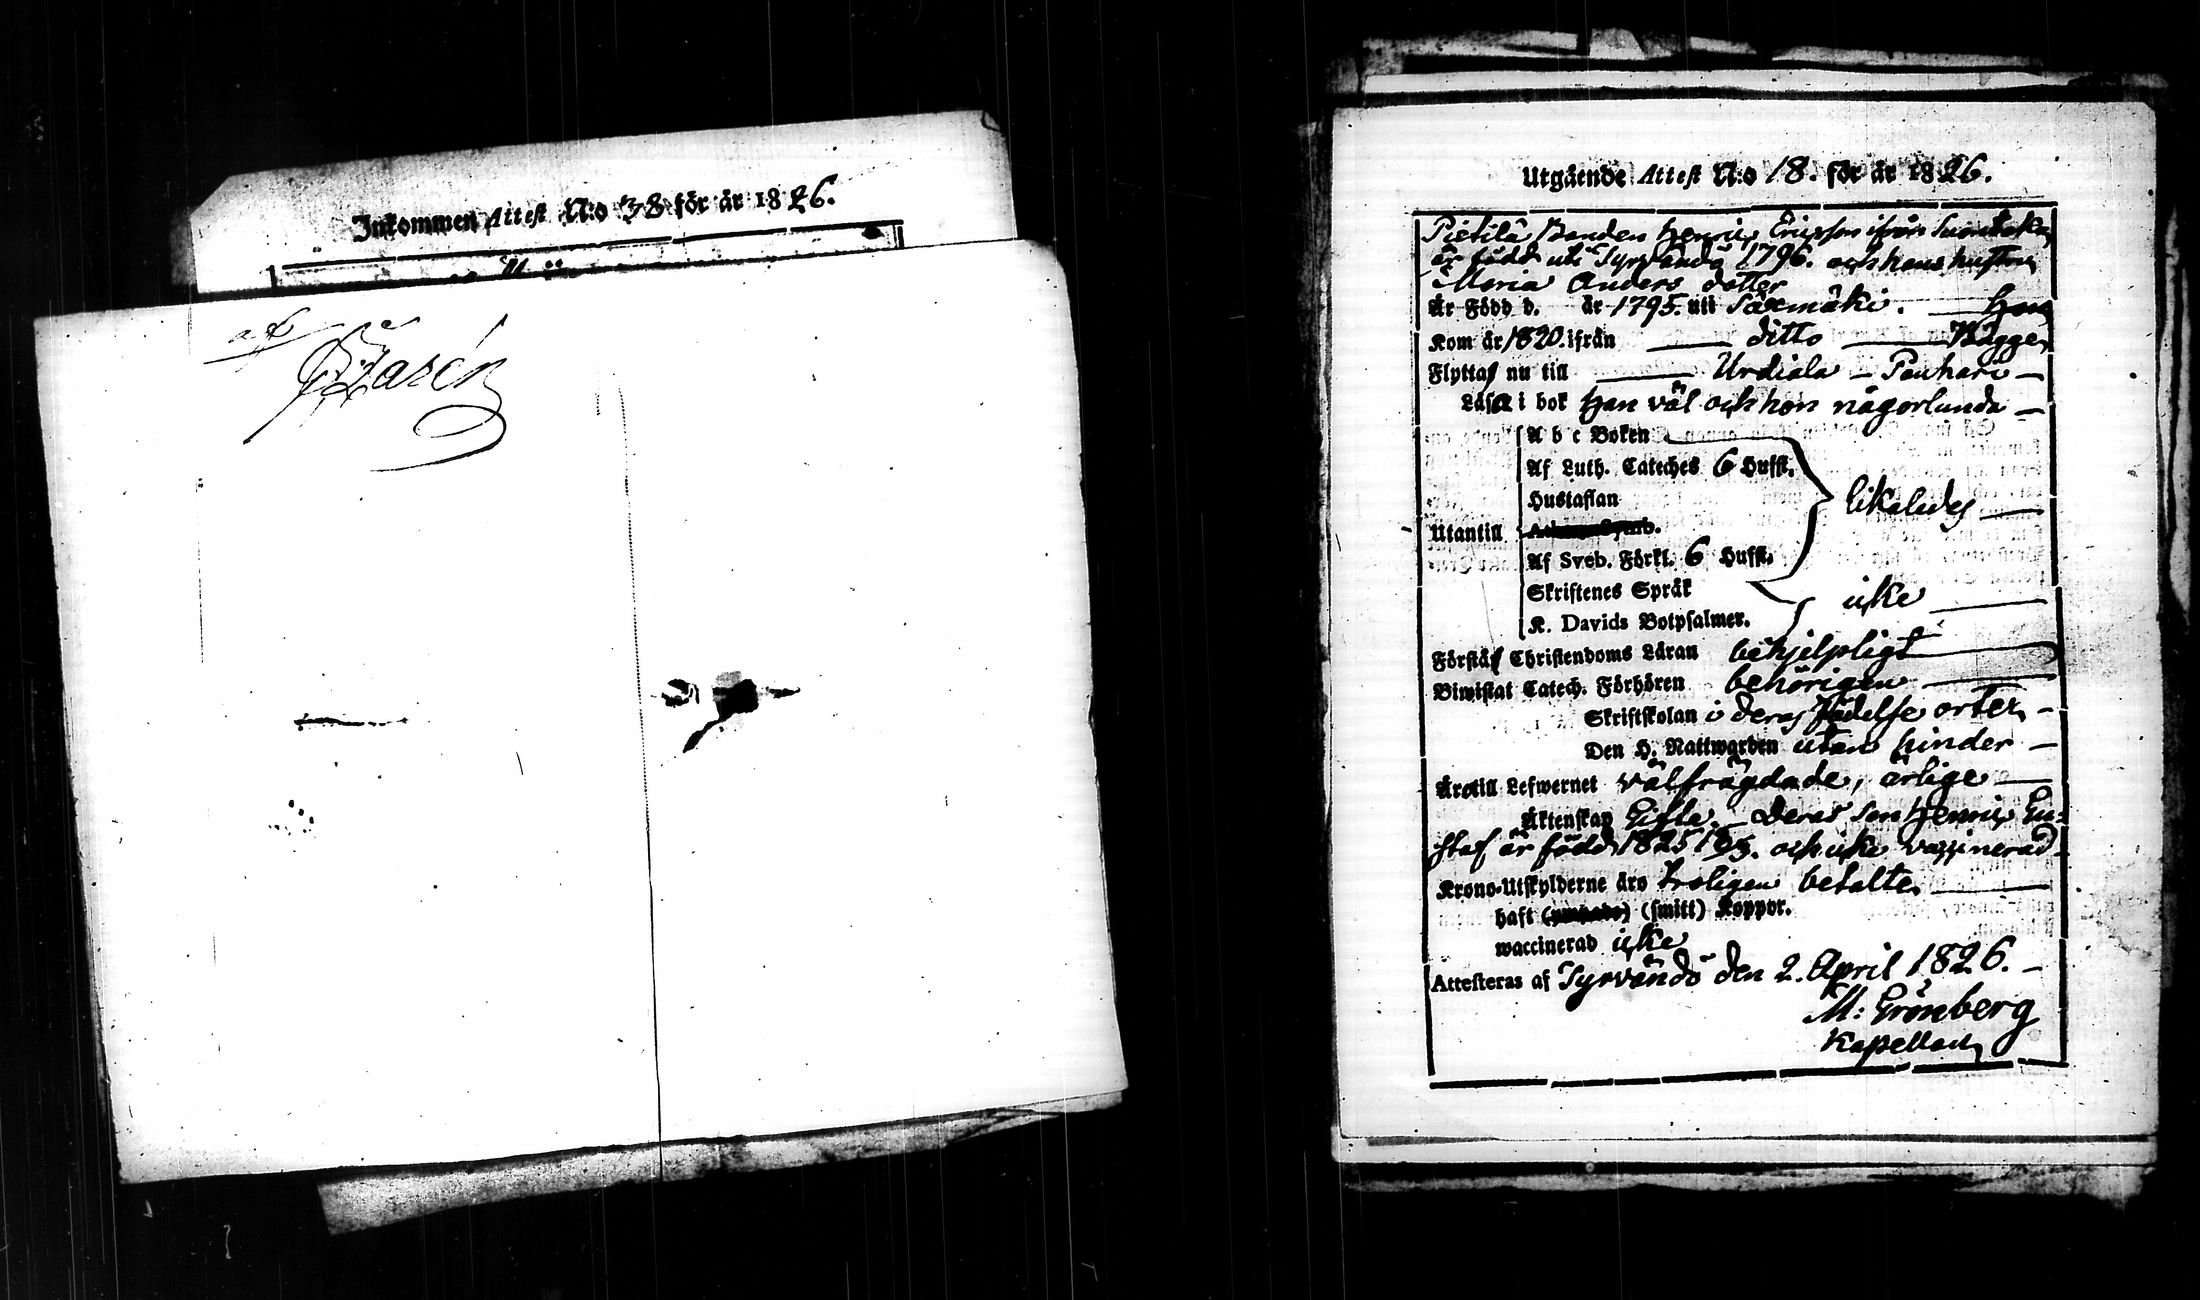 Inkommen Attest N:o 38 för år 1826.
af
Utgående Attest N:o 18. för år 1826.
Pietilä Bonden Henric Ericsson ifrån Suontaka
är född uti Tyrvändö 1796. och hans hustru
Maria Anders dotter
Är Född d. år 1795. uti Säxmäki. — Hon
Kom år 1820. ifrån — ditto — Bägge
Flyttas nu till — Urdiala — Pauhari —
Läsa i bok Han väl och hon någorlunda —
A b c Boken
Af Luth. Cateches 6 Hufst.
Hustaflan
likaledes —
Utantill
Af Sveb. Förkl. 6 Hufst.
Skriftenes Språk
icke —
K. Davids Botpsalmer.
Förstå Christendoms Läran behjelpligt —
Biwistat Catech. Förhören behörigen —
Skriftskolan i deras födelse orter —
Den H. Nattwarden utan hinder —
Äro till Lefwernet välfrägdade, ärlige —
Äktenskap Gifta. — Deras son Henric Gu=
staf är född 1825 och icke vaccinerad —
Krono-Utskylderne äro troligen betalte —
haft (smitt) Koppor.
waccinerad icke
Attesteras af Tyrvändö den 2. April 1826. —
M: Grönberg
Kapellan